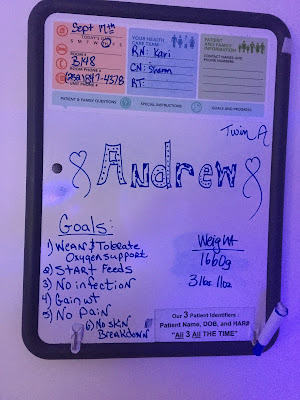 Sept 17th
TODAY'S DATE
S M T W T F S
ROOM #
3148
ROOM PHONE #
(252) 847-4378
UNIT PHONE #
YOUR HEALTH CARE TEAM
RN: Kari
CN:
RT:
PATIENT AND FAMILY INFORMATION
CONTACT NAMES AND PHONE NUMBERS:
PATIENT & FAMILY QUESTIONS
SPECIAL INSTRUCTIONS
GOALS AND PROGRESS
Twin A
Andrew
Goals:
1) Wean & Tolerate
Oxygen support
2) Start Feeds
3) No infection
4) Gain wt
5) No Pain
6) No skin
Breakdown
Weight
1660g
3lbs 11oz
Our 3 Patient Identifiers :
Patient Name, DOB, and HAR#
"All 3 All THE TIME"